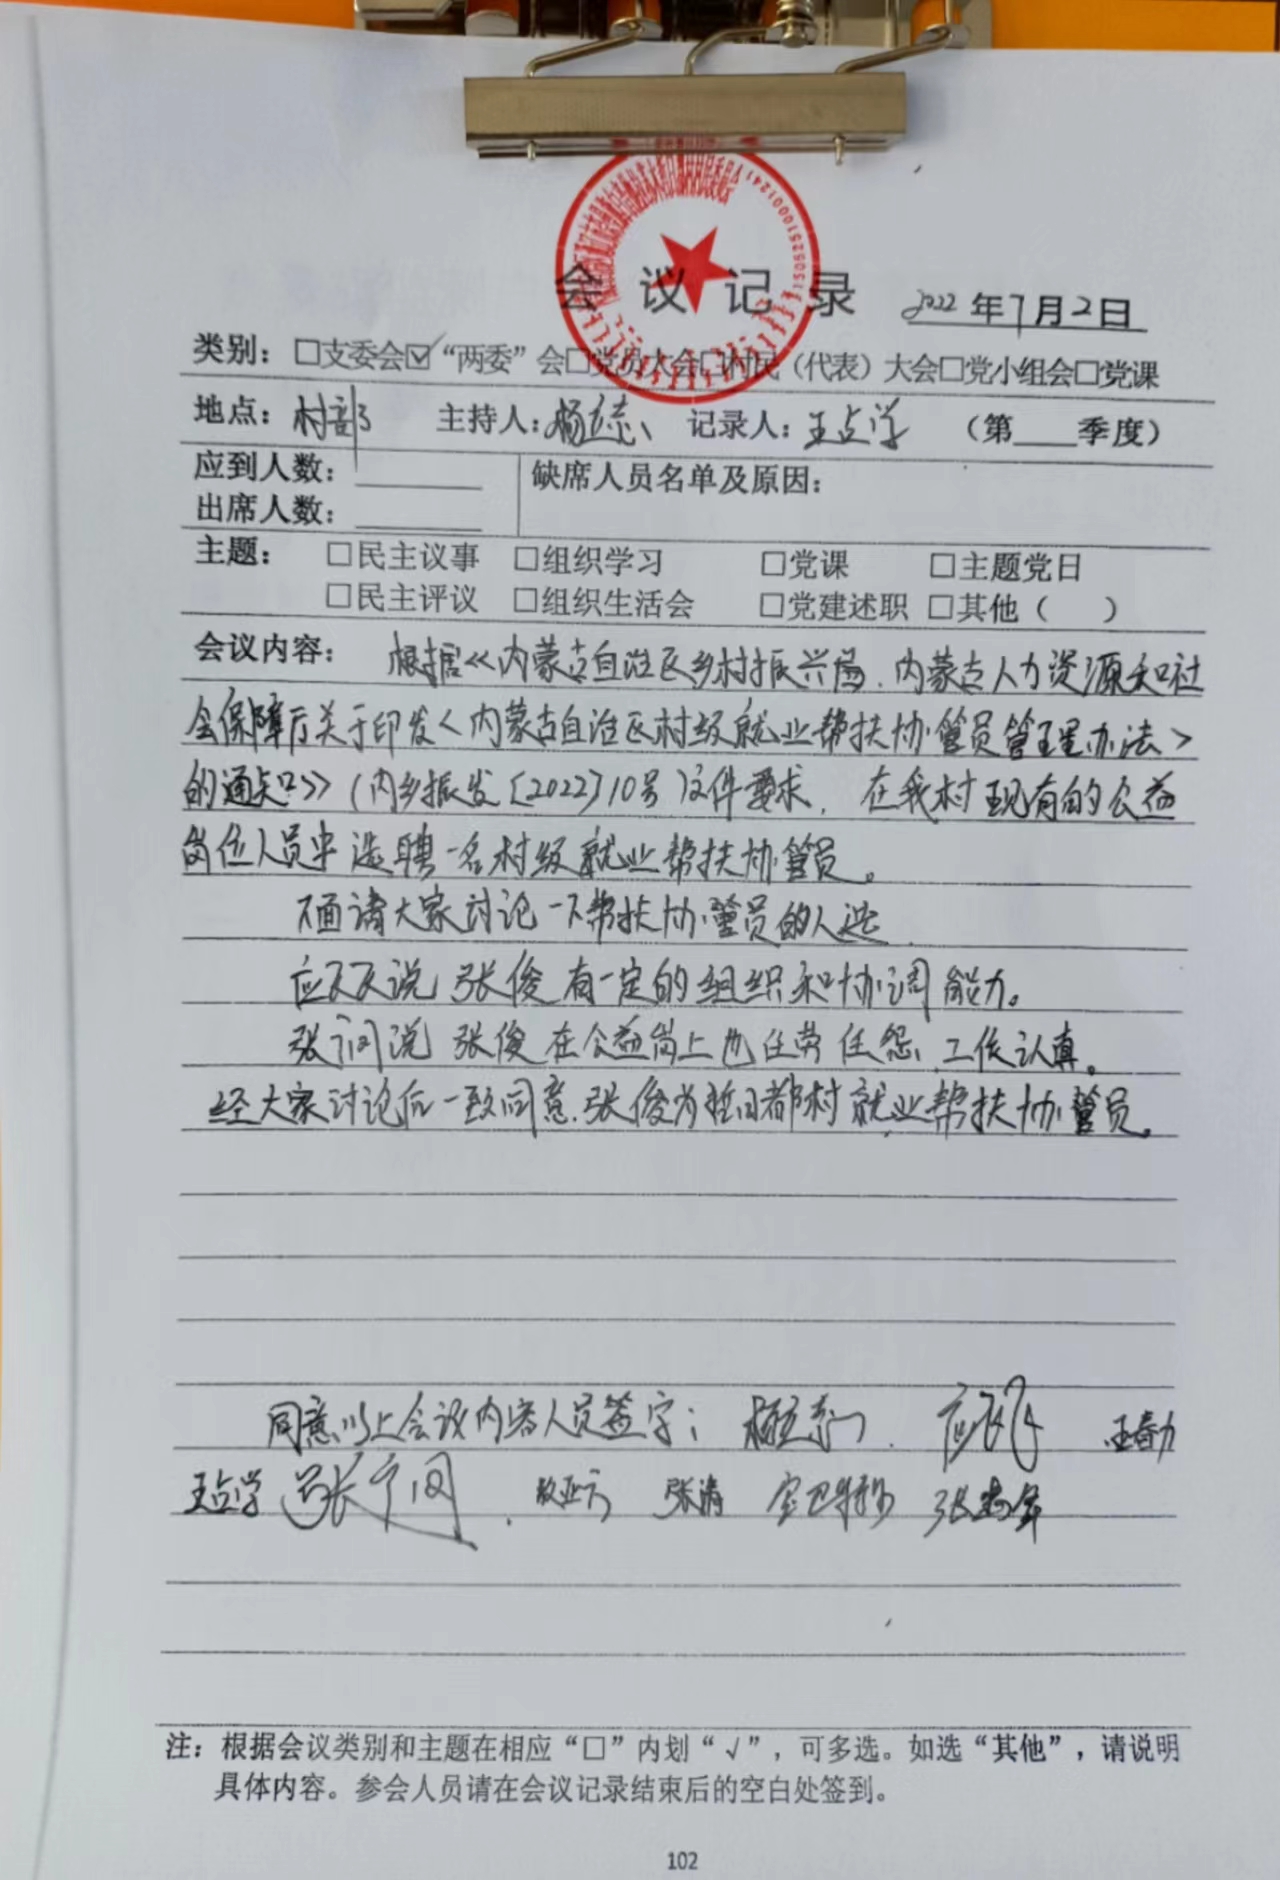 会议记录 2022年7月2日
类别：□支委会☑“两委”会□党员大会□村民（代表）大会□党小组会□党课
地点：村部 主持人：杨志 记录人：王占学 （第 季度）
应到人数： 缺席人员名单及原因：
出席人数：
主题： □民主议事 □组织学习 □党课 □主题党日
□民主评议 □组织生活会 □党建述职 □其他（ ）
会议内容： 根据《内蒙古自治区乡村振兴局、内蒙古人力资源和社
会保障厅关于印发<内蒙古自治区村级就业帮扶协管员管理办法>
的通知》（内乡振发〔2022〕10号）文件要求，在我村现有的公益
岗位人员中选聘一名村级就业帮扶协管员。
下面请大家讨论一下帮扶协管员的人选
应天天说 张俊有一定的组织和协调能力。
张润说 张俊在公益岗上也任劳任怨，工作认真。
经大家讨论后一致同意，张俊为哲日都村就业帮扶协管员。
同意以上会议内容人员签字： 王春力
王占学 张清
注：根据会议类别和主题在相应“□”内划“√”，可多选。如选“其他”，请说明
具体内容。参会人员请在会议记录结束后的空白处签到。
102